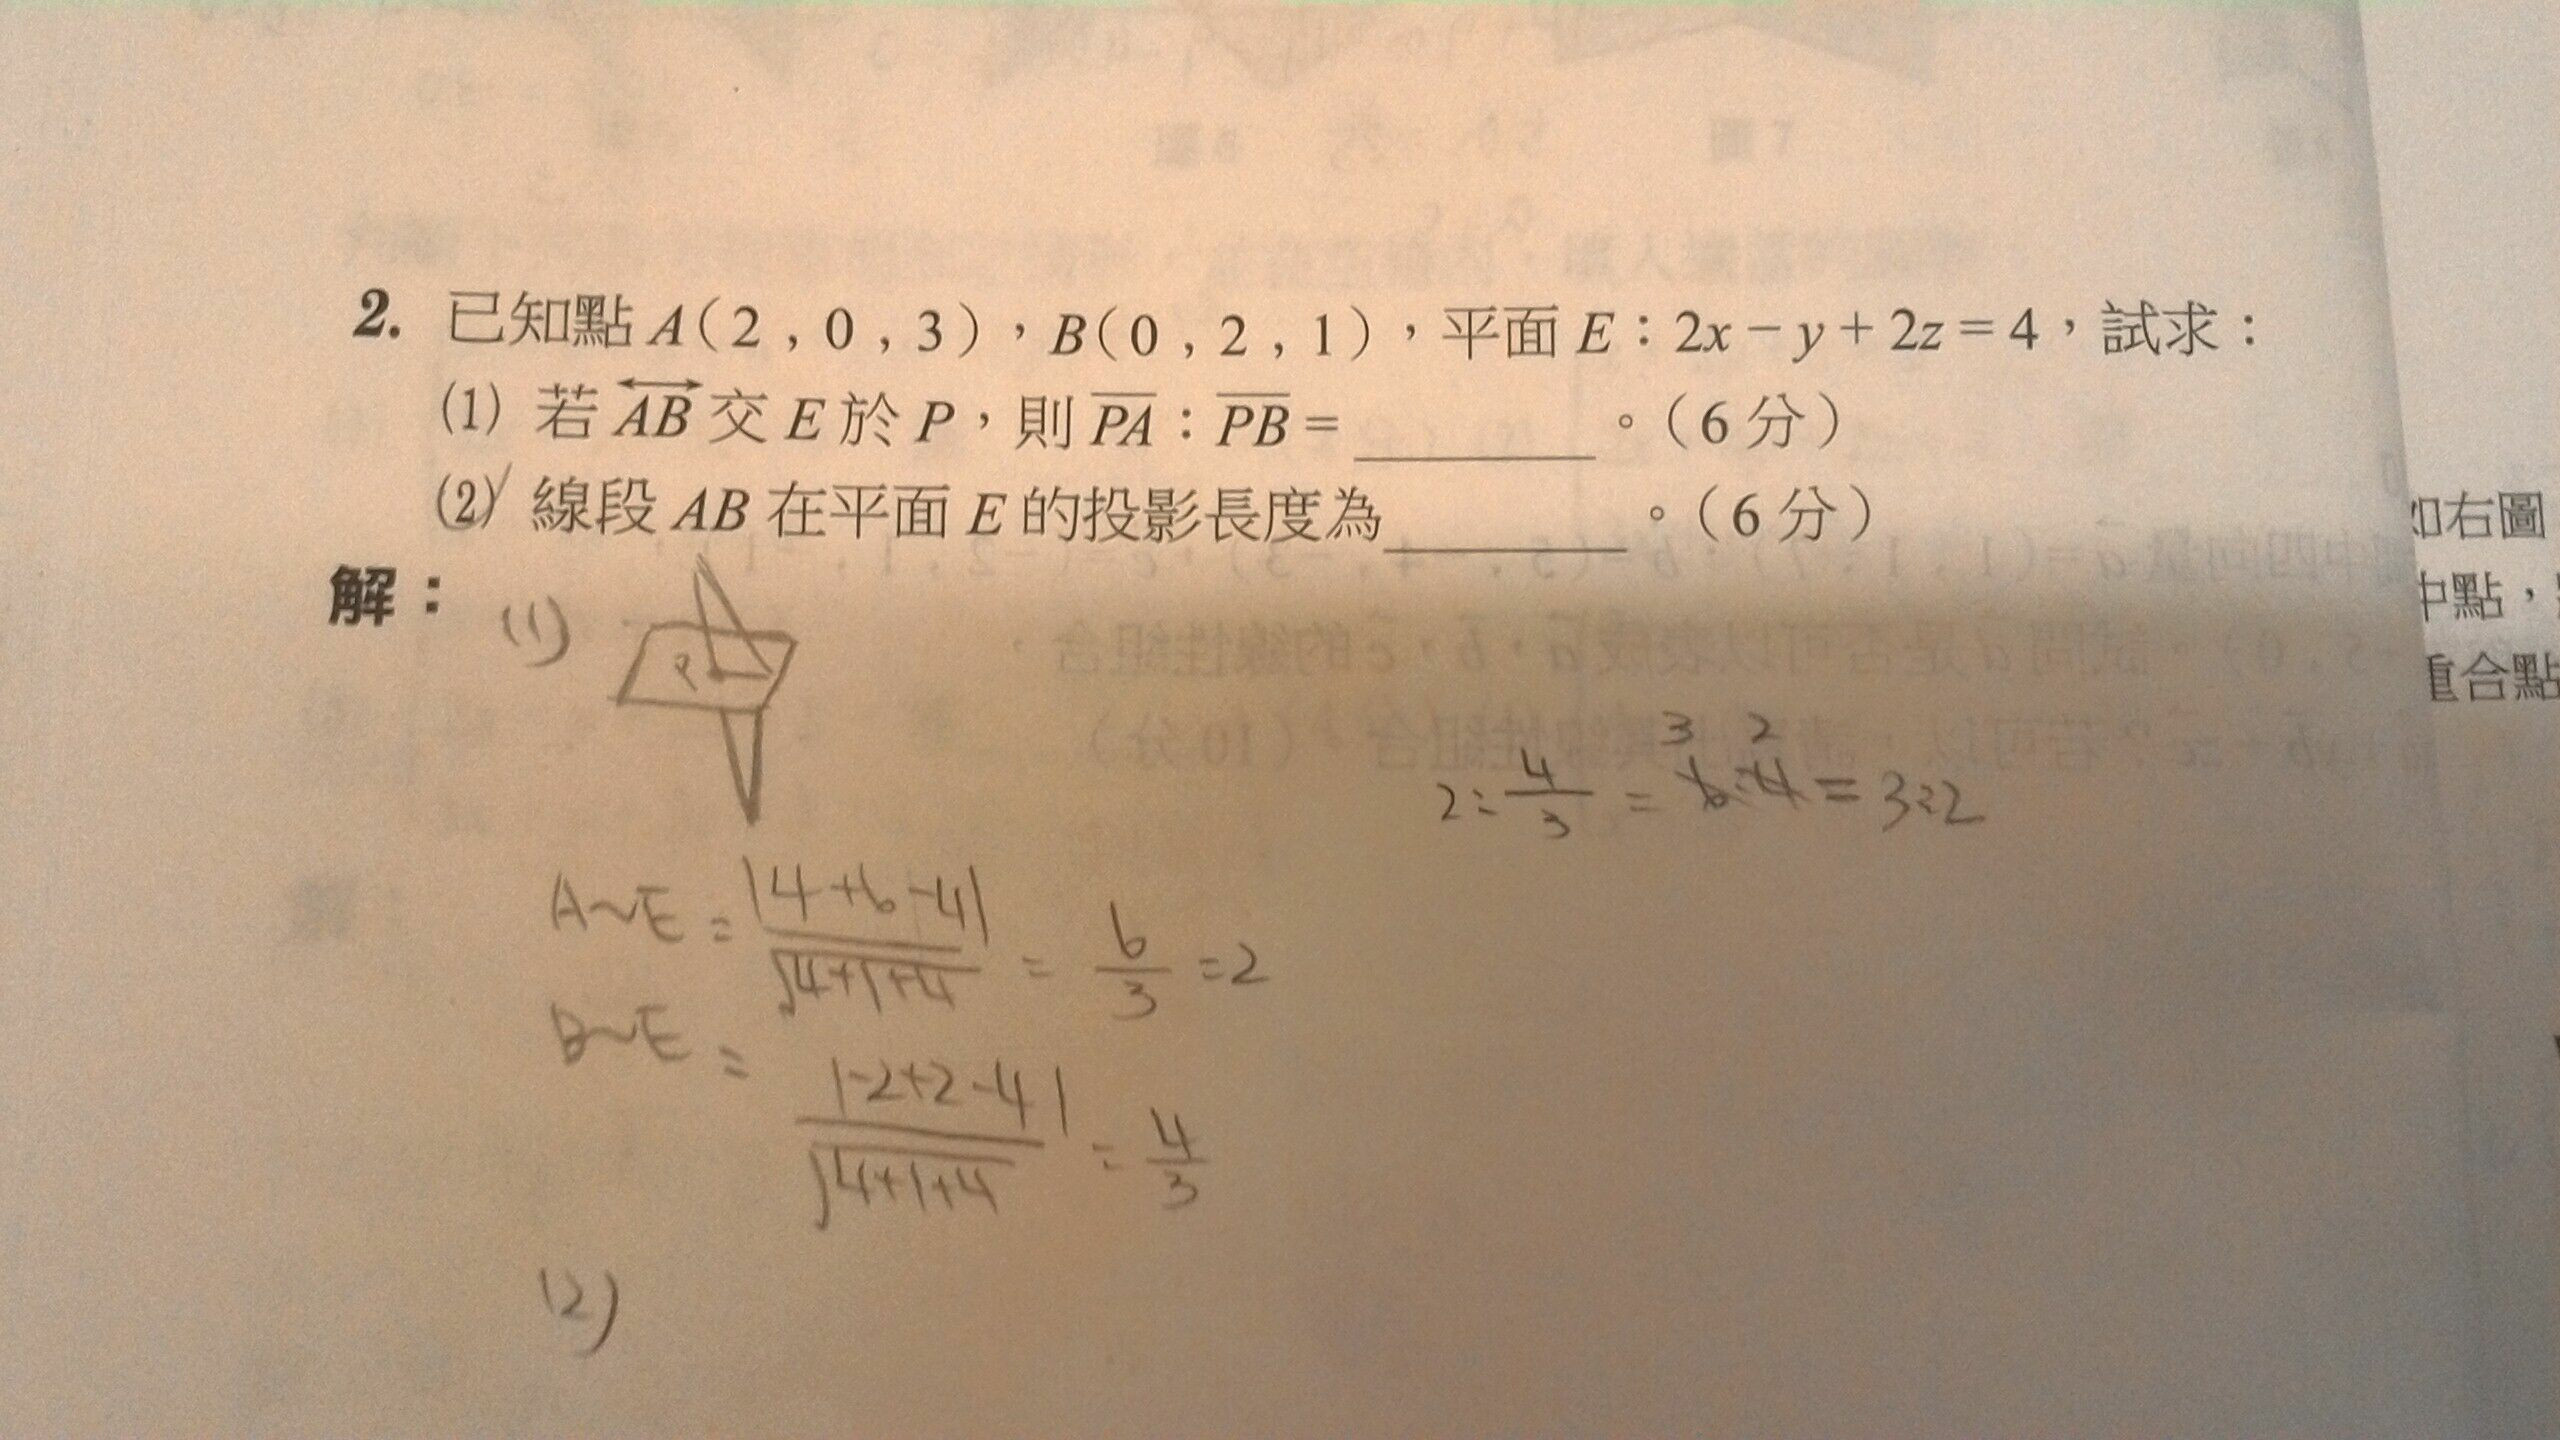 2. 已知點 A(2 , 0 , 3),B(0 , 2 , 1),平面 E:2x − y + 2z = 4,試求:
(1) 若 AB 交 E 於 P,則 PA:PB = ________。(6 分)
(2) 線段 AB 在平面 E 的投影長度為________。(6 分)
如右圖
中點,
重合點
解:
(1)
P
2:4/3 = 6:4 = 3:2
3 2
A~E = |4+6-4| / √4+1+4 = 6/3 = 2
B~E = |-2+2-4| / √4+1+4 = 4/3
(2)